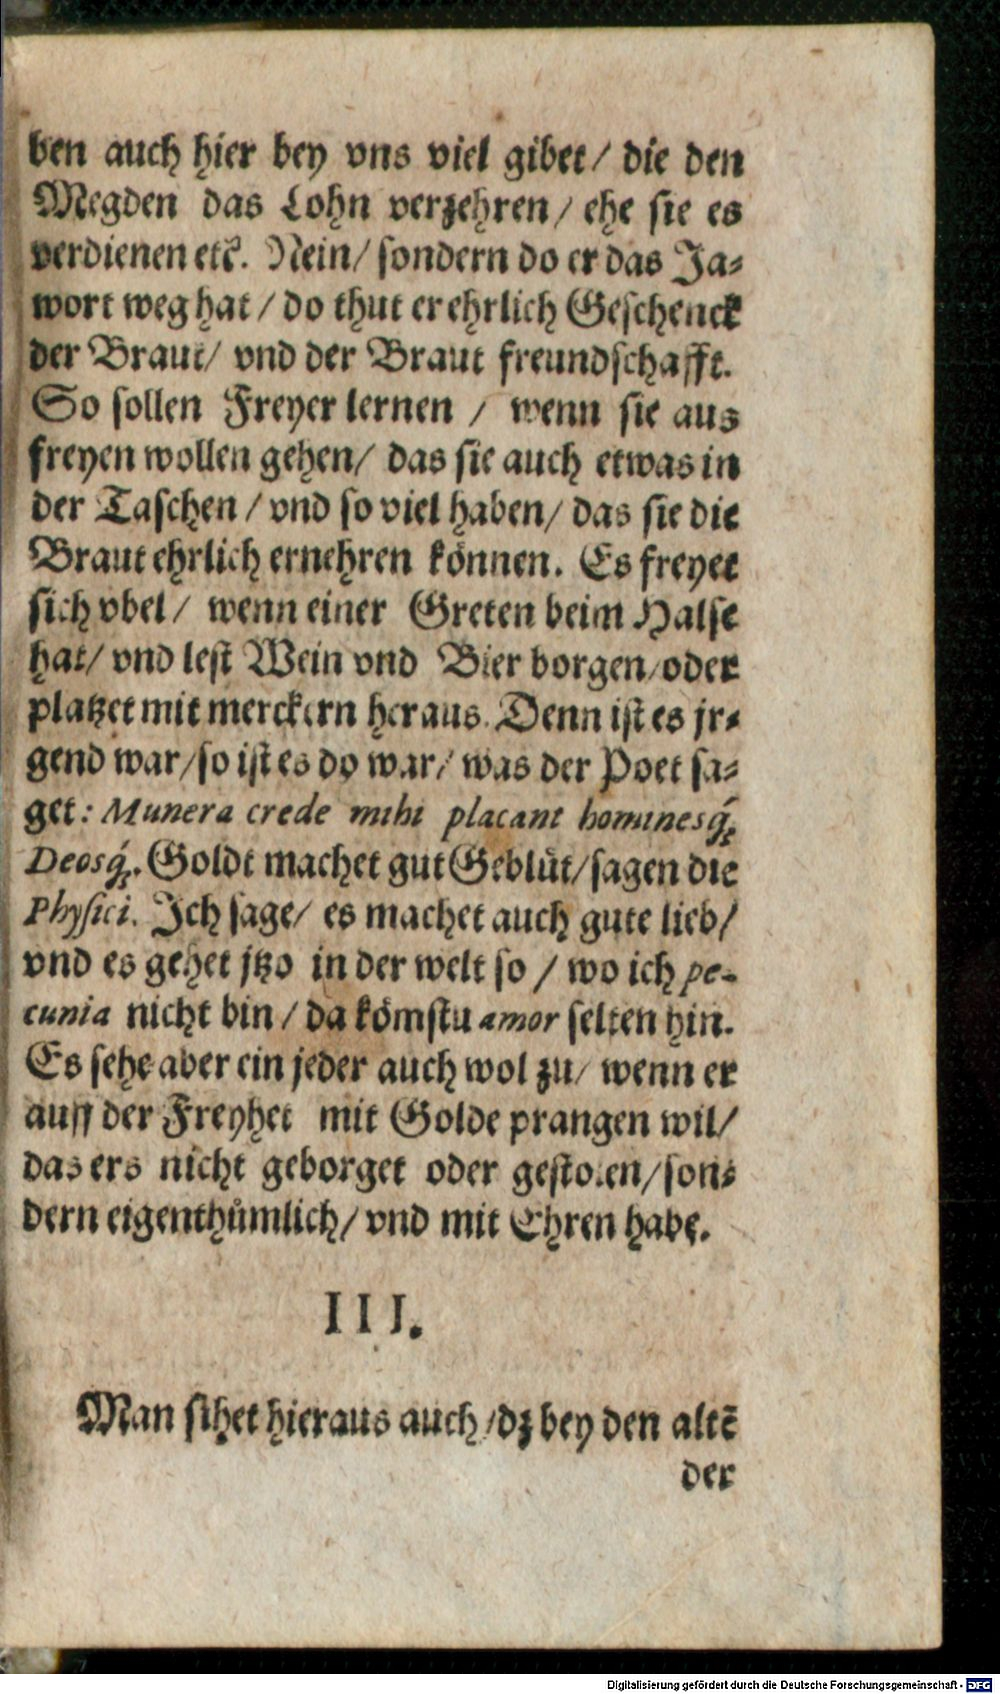 ben auch hier bey vns viel gibet/ die den
Megden das Lohn verzehren/ ehe sie es
verdienen etc. Nein/ sondern do er das Ja⸗
wort weg hat/ do thut er ehrlich Geschenck
der Braut/ vnd der Braut freundschafft.
So sollen Freyer lernen / wenn sie aus
freyen wollen gehen/ das sie auch etwas in
der Taschen/ vnd so viel haben/ das sie die
Braut ehrlich ernehren koͤnnen. Es freyet
sich vbel/ wenn einer Greten beim Halse
hat/ vnd lest Wein vnd Bier borgen/ oder
platzet mit merckern heraus. Denn ist es jr⸗
gend war/ so ist es do war/ was der Poet sa⸗
get: Munera crede mihi placant hominesq́;
Deosq́;. Goldt machet gut Gebluͤt/ sagen die
Physici. Ich sage/ es machet auch gute lieb/
vnd es gehet jtzo in der welt so / wo ich pe-
cunia nicht bin/ da koͤmstu amor selten hin.
Es sehe aber ein jeder auch wol zu/ wenn er
auff der Freyhet mit Golde prangen wil/
das ers nicht geborget oder gestolen/ son⸗
dern eigenthuͤmlich/ vnd mit Ehren habe.
III.
Man sihet hieraus auch/ dz bey den altẽ
der
Digitalisierung gefördert durch die Deutsche Forschungsgemeinschaft - DFG